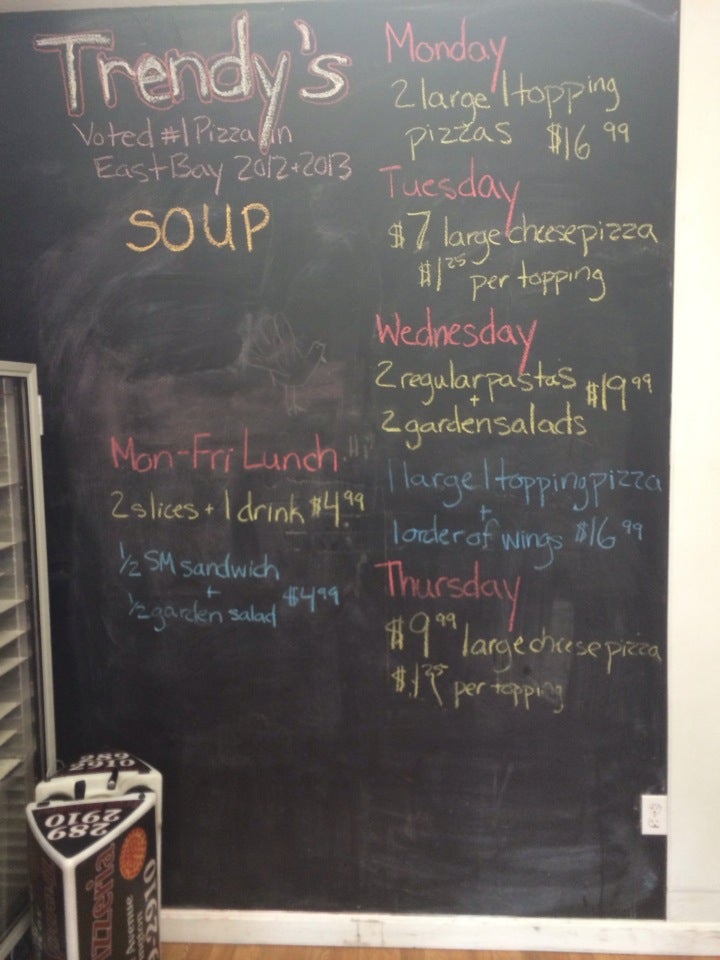 Trendy's
Voted #1 Pizza in
East Bay 2012+2013
SOUP
Mon-Fri Lunch
2 slices + 1 drink $4.99
1/2 SM sandwich
+
1/2 garden salad $4.99
Monday
2 large 1 topping
pizzas $16.99
Tuesday
$7 large cheese pizza
$1.25 per topping
Wednesday
2 regular pastas
+ $19.99
2 garden salads
1 large 1 topping pizza
+
1 order of wings $16.99
Thursday
$9.99 large cheese pizza
$1.25 per topping
289
2910